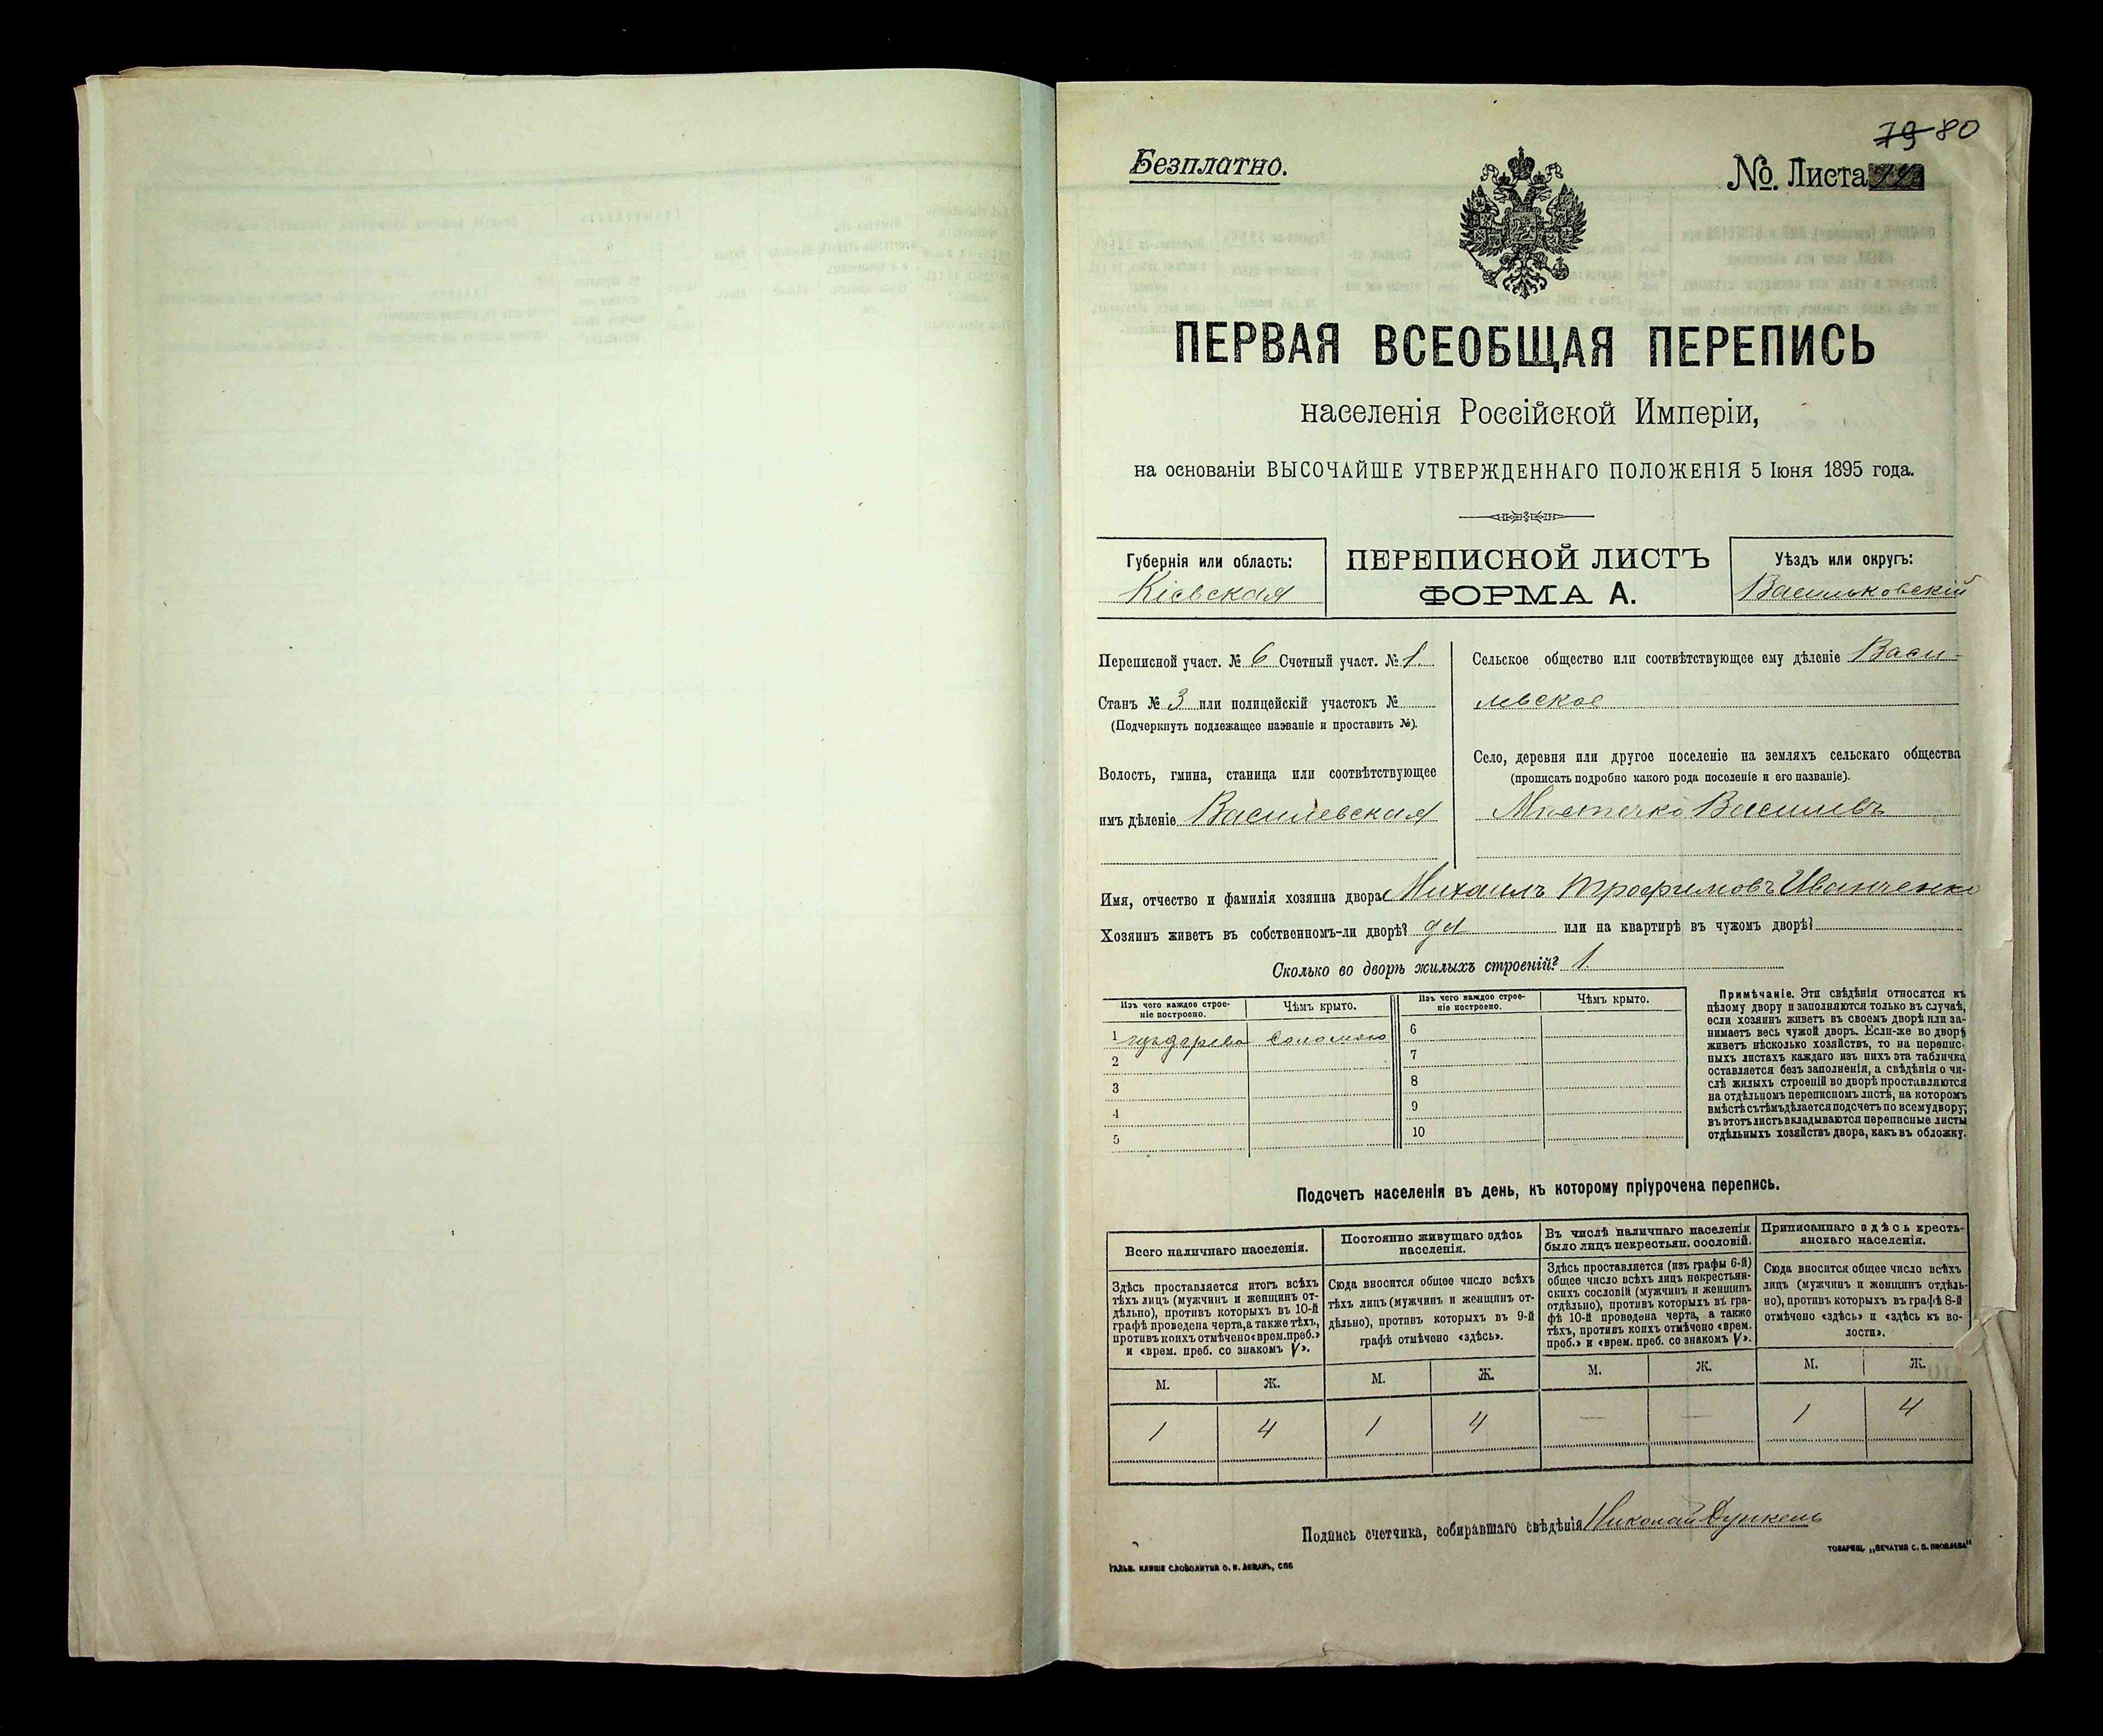 79 80
Безплатно.
№. Листа
ПЕРВАЯ ВСЕОБЩАЯ ПЕРЕПИСЬ
населенія Россійской Имперіи,
на основаніи ВЫСОЧАЙШЕ УТВЕРЖДЕННАГО ПОЛОЖЕНІЯ 5 Іюня 1895 года.
Губернія или область:
Кіевская
ПЕРЕПИСНОЙ ЛИСТЪ
ФОРМА А.
Уѣздъ или округъ:
Васильковскій
Переписной участ. № 6 Счетный участ. № 1.
Станъ № 3 или полицейскій участокъ №
(Подчеркнуть подлежащее названіе и проставить №).
Волость, гмина, станица или соотвѣтствующее
имъ дѣленіе Василевская
Сельское общество или соотвѣтствующее ему дѣленіе Васи-
левское
Село, деревня или другое поселеніе на земляхъ сельскаго общества
(прописать подробно какого рода поселеніе и его названіе).
Мѣстечко Василевъ
Имя, отчество и фамилія хозяина двора Михаилъ Трофимовъ Иванченко
Хозяинъ живетъ въ собственномъ-ли дворѣ? да или на квартирѣ въ чужомъ дворѣ?
Сколько во дворѣ жилыхъ строеній? 1
Изъ чего каждое строе-
ніе построено.
Чѣмъ крыто.
1 изъ дерева соломою
2
3
4
5
Изъ чего каждое строе-
ніе построено.
Чѣмъ крыто.
6
7
8
9
10
Примѣчаніе. Эти свѣдѣнія относятся къ
цѣлому двору и заполняются только въ случаѣ,
если хозяинъ живетъ въ своемъ дворѣ или за-
нимаетъ весь чужой дворъ. Если-же во дворѣ
живетъ нѣсколько хозяйствъ, то на перепис-
ныхъ листахъ каждаго изъ нихъ эта табличка
оставляется безъ заполненія, а свѣдѣнія о чи-
слѣ жилыхъ строеній во дворѣ проставляются
на отдѣльномъ переписномъ листѣ, на которомъ
вмѣстѣ съ тѣмъ дѣлается подсчетъ по всему двору;
въ этотъ листъ вкладываются переписные листы
отдѣльныхъ хозяйствъ двора, какъ въ обложку.
Подсчетъ населенія въ день, къ которому пріурочена перепись.
Всего наличнаго населенія.
Здѣсь проставляется итогъ всѣхъ
тѣхъ лицъ (мужчинъ и женщинъ от-
дѣльно), противъ которыхъ въ 10-й
графѣ проведена черта, а также тѣхъ,
противъ коихъ отмѣчено «врем. преб.»
и «врем. преб. со знакомъ V».
Постоянно живущаго здѣсь
населенія.
Сюда вносится общее число всѣхъ
тѣхъ лицъ (мужчинъ и женщинъ от-
дѣльно), противъ которыхъ въ 9-й
графѣ отмѣчено «здѣсь».
Въ числѣ наличнаго населенія
было лицъ некрестьян. сословій.
Здѣсь проставляется (изъ графы 6-й)
общее число всѣхъ лицъ некрестьян-
скихъ сословій (мужчинъ и женщинъ
отдѣльно), противъ которыхъ въ гра-
фѣ 10-й проведена черта, а также
тѣхъ, противъ коихъ отмѣчено «врем.
преб.» и «врем. преб. со знакомъ V».
Приписаннаго здѣсь кресть-
янскаго населенія.
Сюда вносится общее число всѣхъ
лицъ (мужчинъ и женщинъ отдѣль-
но), противъ которыхъ въ графѣ 8-й
отмѣчено «здѣсь» и «здѣсь къ во-
лости».
М. Ж. М. Ж. М. Ж. М. Ж.
1 4 1 4 — — 1 4
Подпись счетчика, собиравшаго свѣдѣнія Николай Дункель
ГАЛЬВ. КЛИШЕ СЛОВОЛИТНИ О. И. ЛЕМАНЪ, СПБ
ТОВАРИЩ. „ПЕЧАТНЯ С. П. ЯКОВЛЕВА"